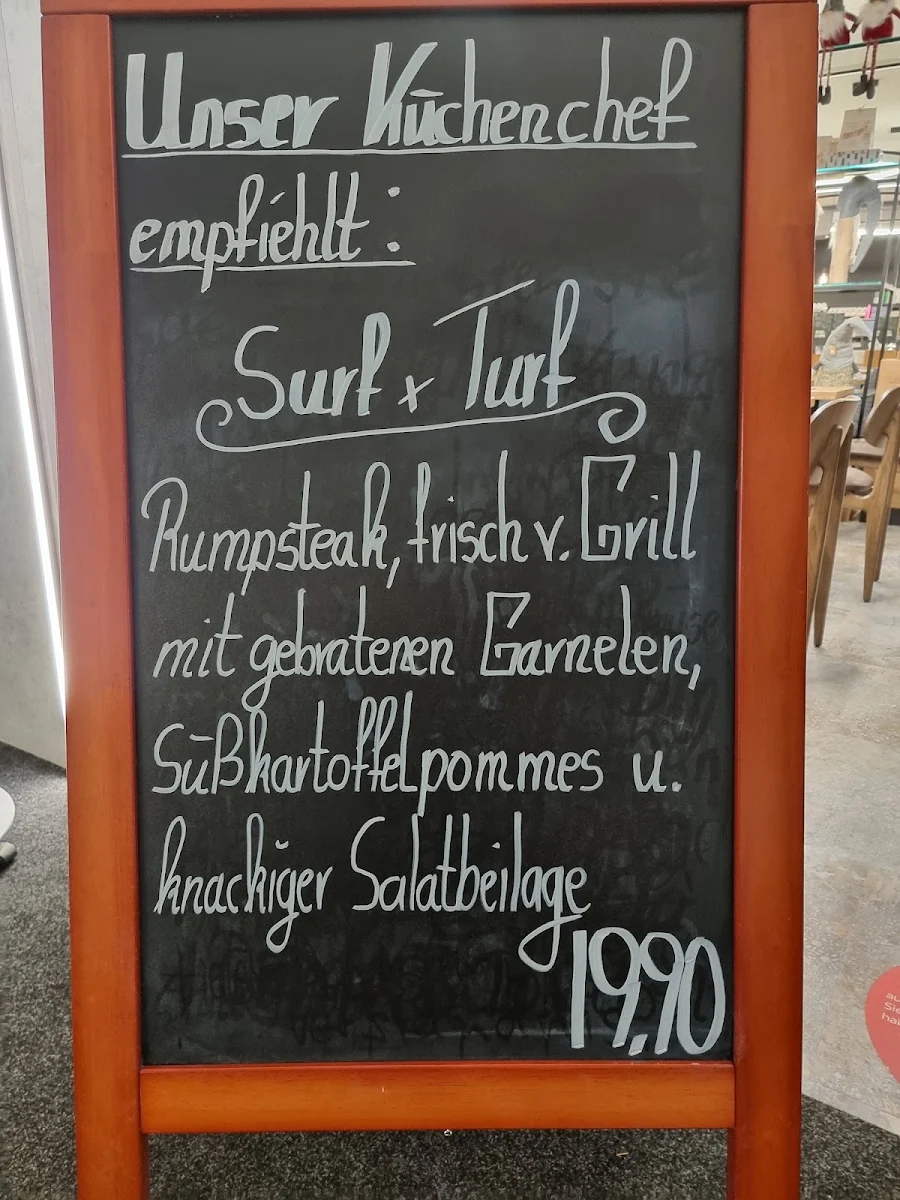 Unser Küchenchef
empfiehlt:
Surf x Turf
Rumpsteak, frisch v. Grill
mit gebratenen Garnelen,
Süßkartoffelpommes u.
knackiger Salatbeilage
19,90